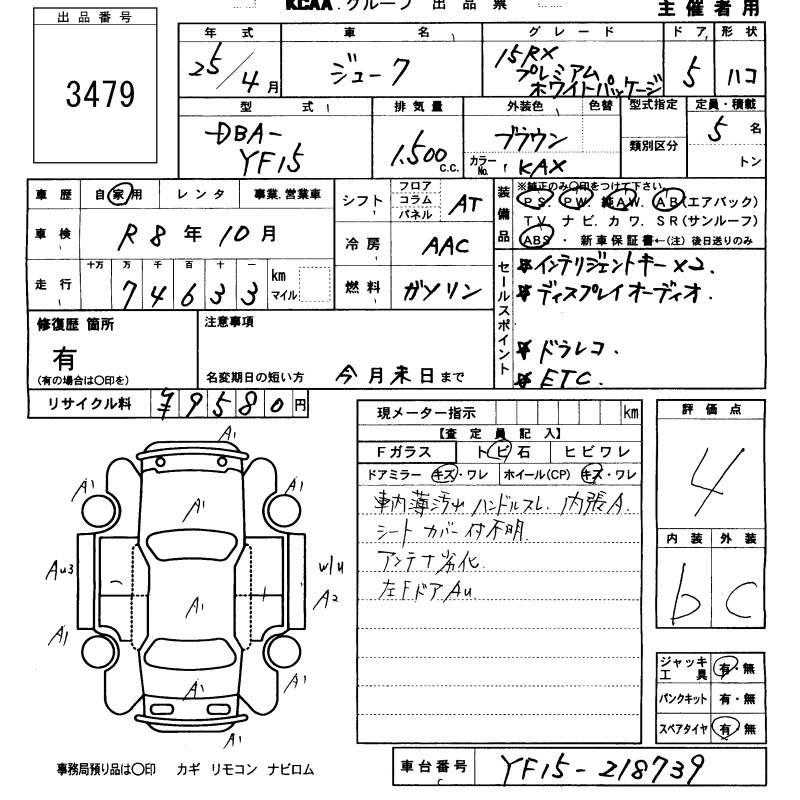 KCAA.グループ 出品票
主催者用
出品番号
3479
年式 車名 グレード ドア 形状
25/4月 ジューク 15RX プレミアム ホワイトパッケージ 5 ハコ
型式 排気量 外装色 色替 型式指定 定員・積載
DBA-YF15 1.500 c.c. ブラウン 類別区分 5名
カラーNo. KAX トン
車歴 自家用 レンタ 事業.営業車
シフト フロア コラム パネル AT
装備品 ※純正のみ○印をつけて下さい。
PS. PW. 純AW. AB(エアバック)
TV. ナビ. カワ. SR(サンルーフ)
ABS・新車保証書←(注)後日送りのみ
車検 R8年10月
冷房 AAC
走行 十万 万 千 百 十 一
74633 km マイル
燃料 ガソリン
セールスポイント
☆インテリジェントキー×2.
☆ディスプレイオーディオ.
☆ドラレコ.
☆ETC.
修復歴 箇所
有
(有の場合は○印を)
注意事項
名変期日の短い方 今月末日まで
リサイクル料 ¥9580円
現メーター指示 km
【査定員記入】
Fガラス トビ石 ヒビワレ
ドアミラー キズ・ワレ ホイール(CP) キズ・ワレ
車内薄汚れ ハンドルスレ. 内張A.
シートカバー付不明.
アンテナ劣化
左FドアAu
評価点
4
内装 外装
b C
A1
A1 A1 A1
Au3 W/U
A1 A2
A1 A1
A1 A1
A1
ジャッキ工具 有・無
パンクキット 有・無
スペアタイヤ 有・無
事務局預り品は○印 カギ リモコン ナビロム
車台番号 YF15-218739